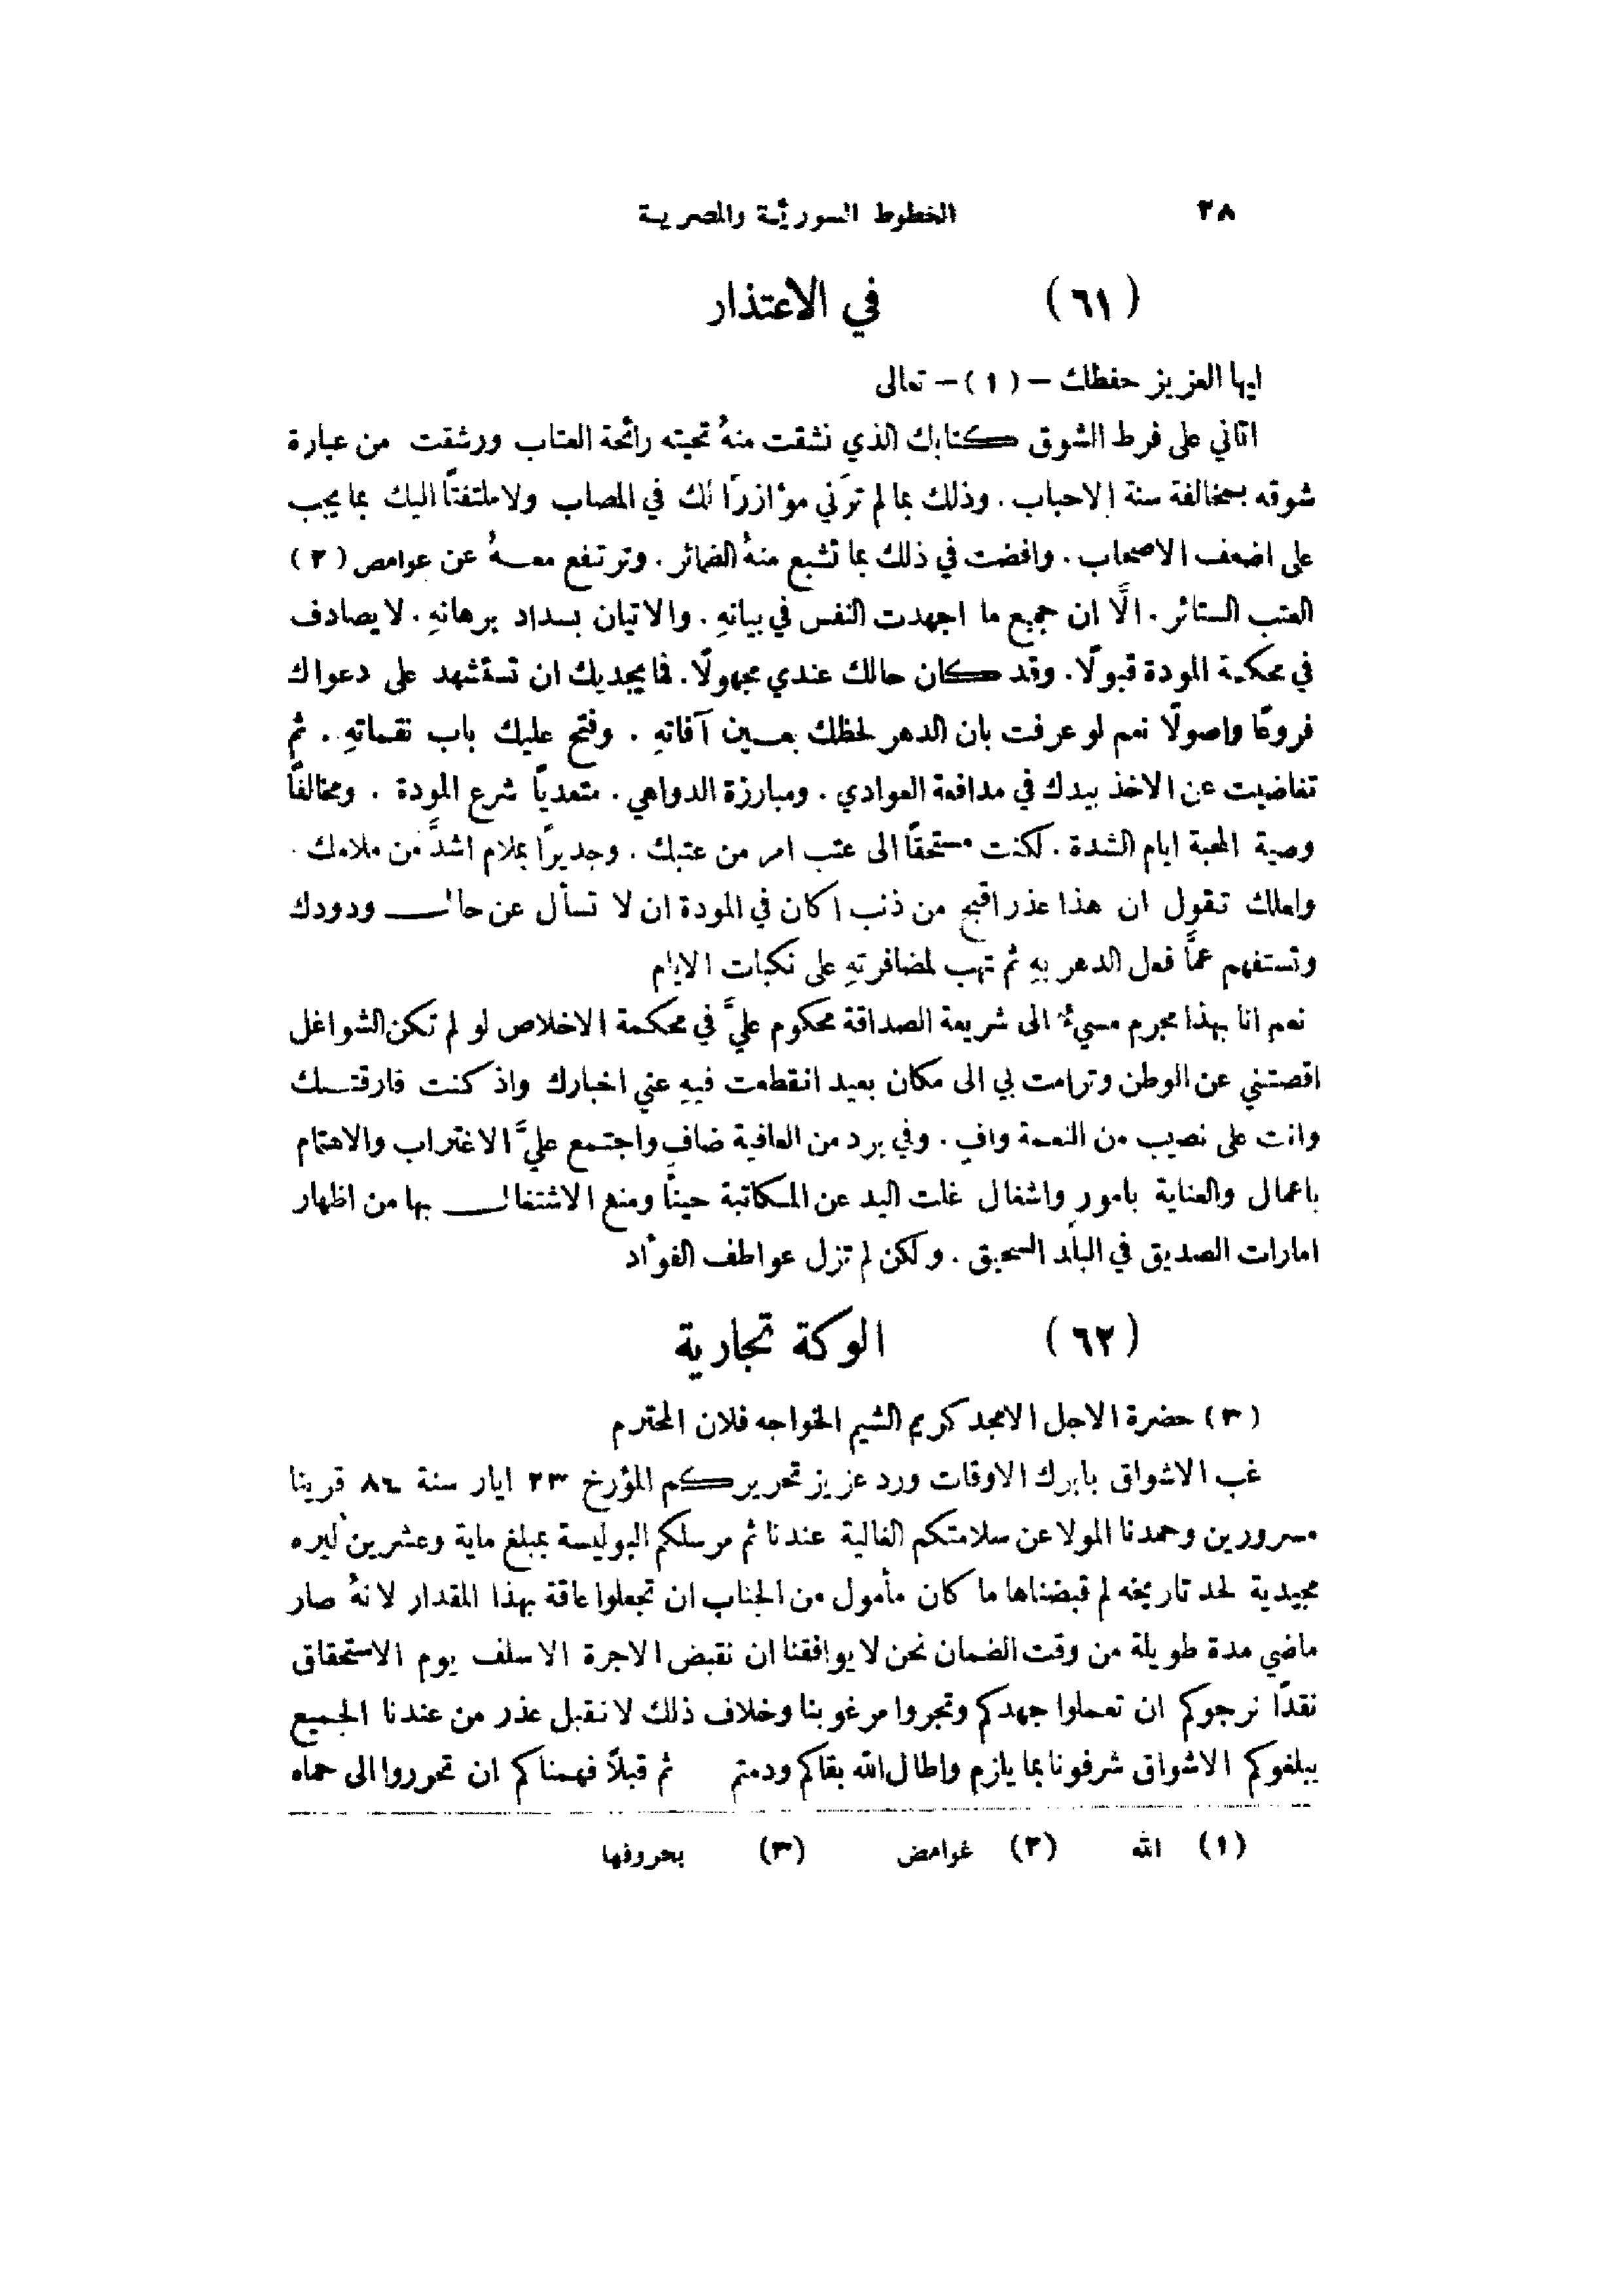 ٢٨ الخطوط السوريَّة والمصرية
(٦١) في الاعتذار
ايها العزيز حفظك – (١) – تعالى
اتاني على فرط الشوق كتابك الذي نشقت منهُ تحيته رائحة العتاب ورشفت من عبارة
شوقه بمخالفة سنة الاحباب . وذلك بما لم ترَني مؤازرًا لك في المصاب ولا ملتفتًا اليك بما يجب
على اضعف الاصحاب . وافضت في ذلك بما تشبع منهُ الضمائر . وترتفع معهُ عن عوامص (٢)
العتب الستائر . الَّا ان جميع ما اجهدت النفس في بيانهِ . والاتيان بسداد برهانهِ . لا يصادف
في محكمة المودة قبولًا . وقد كان حالك عندي مجهولًا . فما يجديك ان تستشهد على دعواك
فروعًا واصولًا نعم لو عرفت بان الدهر لحظك بعين آفاتهِ . وفتح عليك باب نقماتهِ . ثم
تغاضيت عن الاخذ بيدك في مدافعة العوادي . ومبارزة الدواهي . متعديًا شرع المودة . ومخالفًا
وصية المحبة ايام الشدة . لكنت مستحقًا الى عتب امر من عتبك . وجديرًا بملام اشدَّ من ملامك .
ولعلك تقول ان هذا عذر اقبح من ذنب اكان في المودة ان لا تسأل عن حال ودودك
وتستفهم عمَّا فعل الدهر بهِ ثم تهب لمضافرتهِ على نكبات الايام
نعم انا بهذا مجرم مسيءٌ الى شريعة الصداقة محكوم عليَّ في محكمة الاخلاص لو لم تكن الشواغل
اقصتني عن الوطن وترامت بي الى مكان بعيد انقطعت فيهِ عني اخبارك واذ كنت فارقتك
وانت على نصيب من النعمة وافٍ . وفي برد من العافية ضافٍ واجتمع عليَّ الاغتراب والاهتمام
باعمال والعناية بامورٍ واشغال غلت اليد عن المكاتبة حينًا ومنع الاشتغال بها من اظهار
امارات الصديق في البلد السحيق . ولكن لم تزل عواطف الفؤاد
(٦٢) الوكة تجارية
(٣) حضرة الاجل الامجد كريم الشيم الخواجه فلان المحترم
غب الاشواق بابرك الاوقات ورد عزيز تحريركم المؤرخ ٢٣ ايار سنة ٨٦ قرينا
مسرورين وحمدنا المولا عن سلامتكم الغالية عندنا ثم مرسلكم البوليسة بمبلغ ماية وعشرين ليره
مجيدية لحد تاريخه لم قبضناها ما كان مأمول من الجناب ان تجعلوا عاقة بهذا المقدار لانهُ صار
ماضي مدة طويلة من وقت الضمان نحن لا يوافقنا ان نقبض الاجرة الا سلف يوم الاستحقاق
نقدًا نرجوكم ان تعملوا جهدكم وتجروا مرغوبنا وخلاف ذلك لا نقبل عذر من عندنا الجميع
يبلغوكم الاشواق شرفونا بما يلزم واطال الله بقاكم ودمتم ثم قبلاً فهمناكم ان تحرروا الى حماه
(١) الله (٢) غوامض (٣) بحروفها